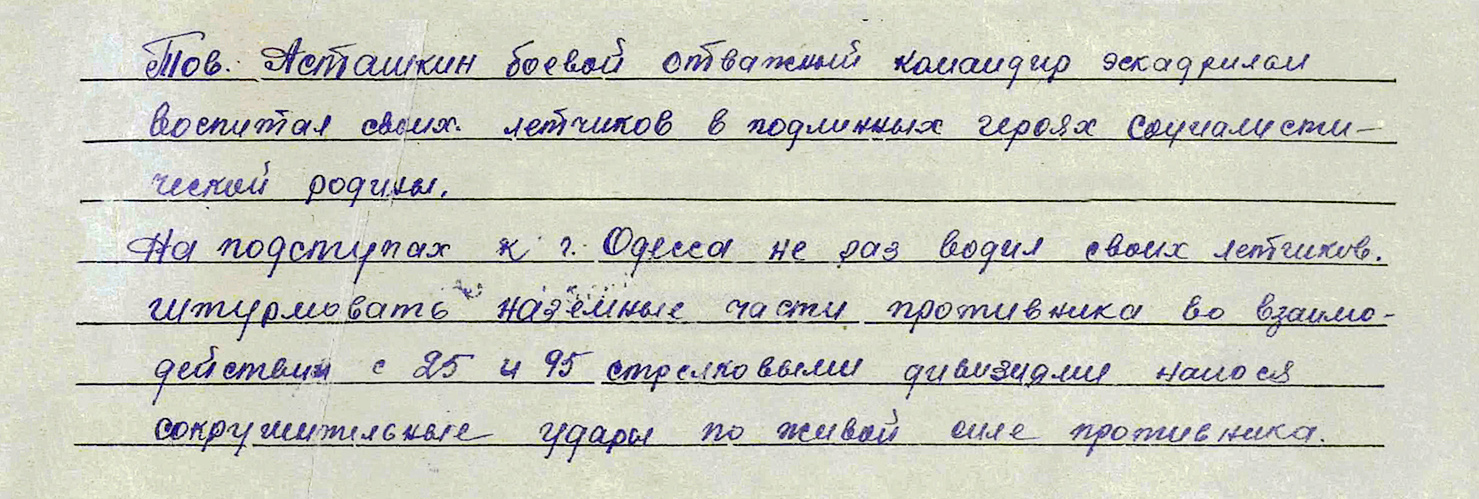 Тов. Асташкин боевой отважный командир эскадрилои
воспитал своих летчиков в подлинных героях социалисти-
ческой родины.
На подступах к г. Одесса не раз водил своих летчиков.
штурмовать наземные части противника во взаимо-
действии с 25 и 95 стрелковыми дивизиями нанося
сокрушительные удары по живой силе противника.